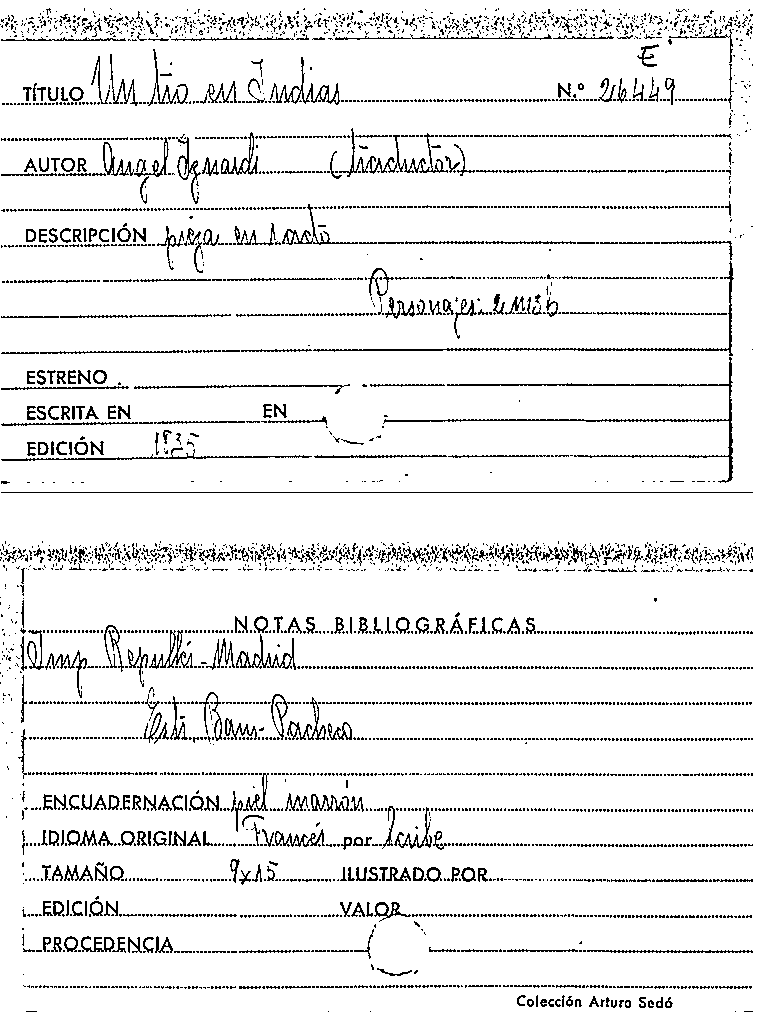 E
TÍTULO Un tio en Indias N.º 26449
AUTOR Angel Iznardi (traductor)
DESCRIPCIÓN pieza en 1 acto
Personajes: 2 M 3 h
ESTRENO
ESCRITA EN EN
EDICIÓN 1835
NOTAS BIBLIOGRÁFICAS
Imp Repullés - Madrid
Baus - Pacheco
ENCUADERNACIÓN piel marrón
IDIOMA ORIGINAL Francés por Scribe
TAMAÑO 9x15 ILUSTRADO POR
EDICIÓN VALOR
PROCEDENCIA
Colección Arturo Sedó